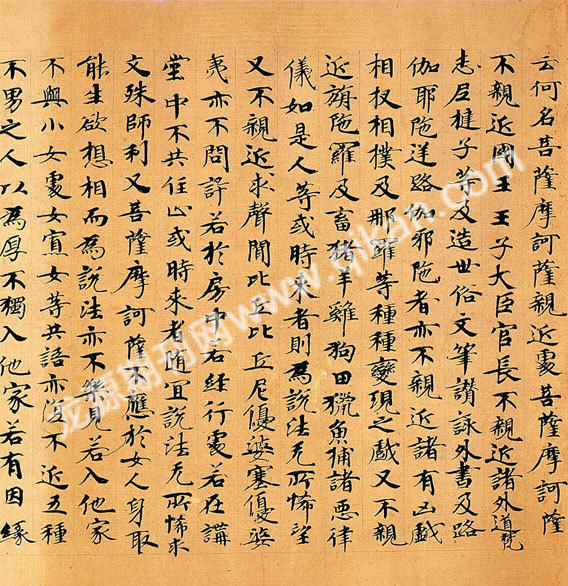 云何名菩薩摩訶薩親近處菩薩摩訶薩
不親近國王王子大臣官長不親近諸外道梵
志尼揵子等及造世俗文筆讃詠外書及路
伽耶陁逆路伽邪陁者亦不親近諸有凶戲
相扠相撲及那羅等種種變現之戲又不親
近旃陁羅及畜猪羊雞狗田獵魚捕諸惡律
儀如是人等或時來者則為說法无所悕望
又不親近求聲聞比丘比丘尼優婆塞優婆
夷亦不問訊若於房中若經行處若在講
堂中不共住止或時來者随冝說法无所悕求
文殊師利又菩薩摩訶薩不應於女人身取
能生欲想相而為說法亦不樂見若入他家
不與小女處女寡女等共語亦復不近五種
不男之人以為厚不獨入他家若有因緣
龙源期刊网www.qikan.com